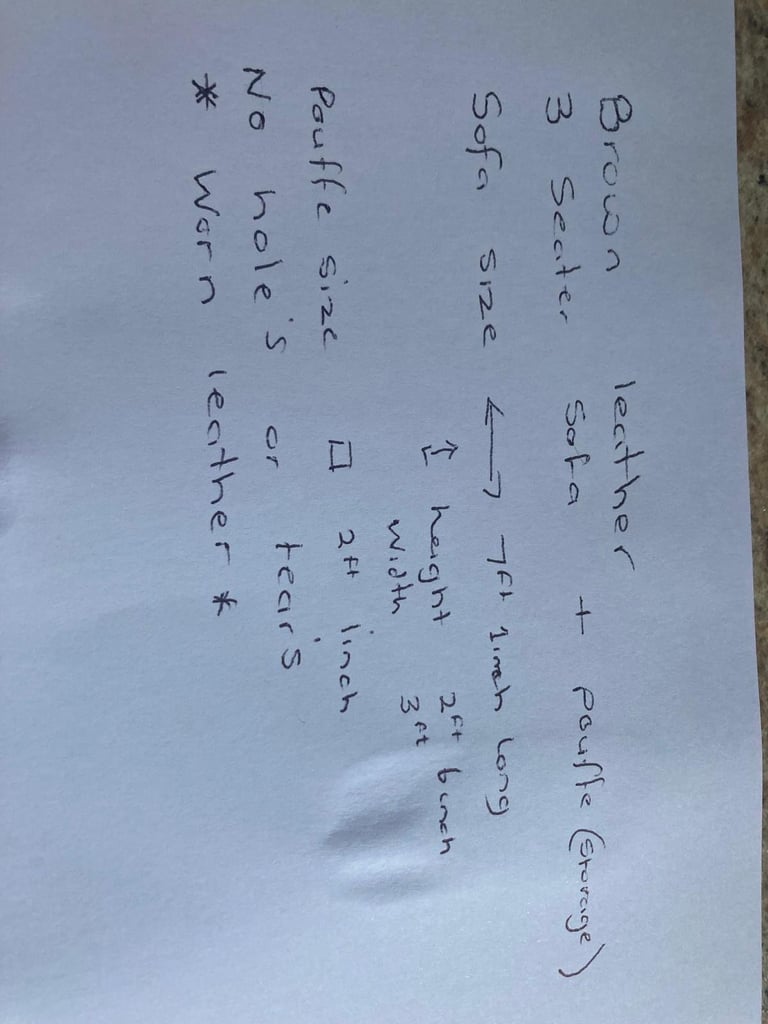 Brown leather
3 Seater Sofa + Pouffe (storage)
Sofa size ⟷ 7ft 1inch Long
⇕ height 2ft 6inch
Width 3ft
Pouffe size □ 2ft 1inch
No hole's or tear's
* Worn leather *